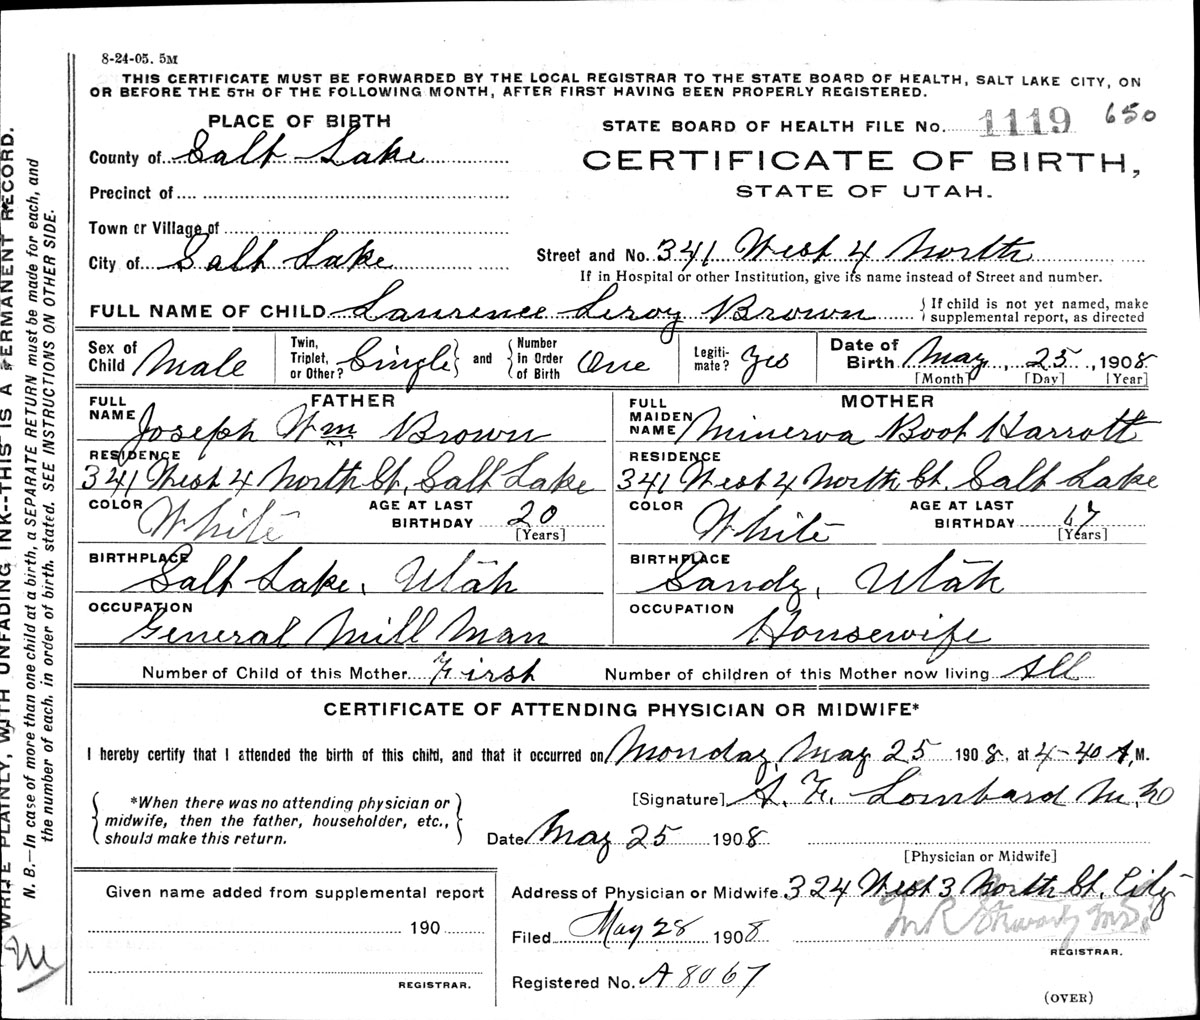 8-24-05. 5M
THIS CERTIFICATE MUST BE FORWARDED BY THE LOCAL REGISTRAR TO THE STATE BOARD OF HEALTH, SALT LAKE CITY, ON
OR BEFORE THE 5TH OF THE FOLLOWING MONTH, AFTER FIRST HAVING BEEN PROPERLY REGISTERED.
PLACE OF BIRTH
STATE BOARD OF HEALTH FILE No. 1119 650
County of Salt Lake
CERTIFICATE OF BIRTH,
Precinct of
STATE OF UTAH.
Town or Village of
City of Salt Lake
Street and No. 341 West 4 North
If in Hospital or other Institution, give its name instead of Street and number.
FULL NAME OF CHILD Laurence Leroy Brown
{If child is not yet named, make
supplemental report, as directed
Sex of
Child Male
Twin,
Triplet,
or Other? Single} and
{Number
in Order
of Birth One
Legiti-
mate? Yes
Date of
Birth May, 25, 1908
[Month] [Day] [Year]
FATHER
FULL
NAME Joseph Wm Brown
RESIDENCE
341 West 4 North St, Salt Lake
COLOR White
AGE AT LAST
BIRTHDAY 20
[Years]
BIRTHPLACE
Salt Lake, Utah
OCCUPATION
General Mill Man
MOTHER
FULL
MAIDEN
NAME Minerva Boot Harrott
RESIDENCE
341 West 4 North St. Salt Lake
COLOR White
AGE AT LAST
BIRTHDAY 17
[Years]
BIRTHPLACE
Sandy, Utah
OCCUPATION
Housewife
Number of Child of this Mother First
Number of children of this Mother now living All
CERTIFICATE OF ATTENDING PHYSICIAN OR MIDWIFE*
I hereby certify that I attended the birth of this child, and that it occurred on Monday, May 25 1908, at 4-40 A, M.
{*When there was no attending physician or
midwife, then the father, householder, etc.,
should make this return.}
[Signature] A. F. Lombard M.D
Date May 25 1908
[Physician or Midwife]
Given name added from supplemental report
190
REGISTRAR.
Address of Physician or Midwife 324 West 3 North St, City
Filed May 28 1908
REGISTRAR.
Registered No. A 8067
(OVER)
WRITE PLAINLY, WITH UNFADING INK--THIS IS A PERMANENT RECORD.
N. B.—In case of more than one child at a birth, a SEPARATE RETURN must be made for each, and
the number of each, in order of birth, stated. SEE INSTRUCTIONS ON OTHER SIDE.